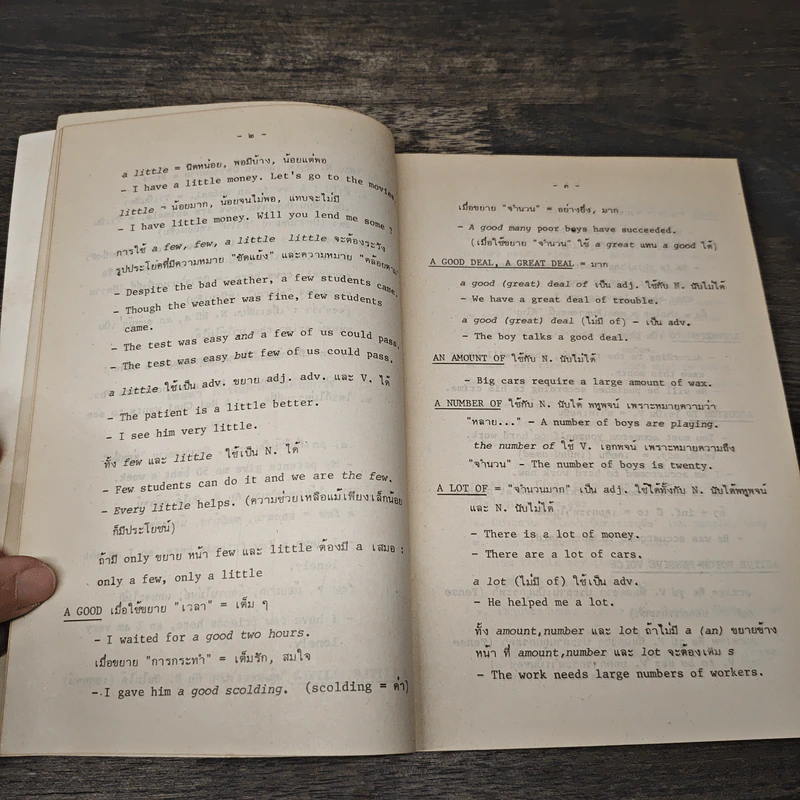 - ๒ -
a little = นิดหน่อย, พอมีบ้าง, น้อยแต่พอ
- I have a little money. Let's go to the movies
little = น้อยมาก, น้อยจนไม่พอ, แทบจะไม่มี
- I have little money. Will you lend me some ?
การใช้ a few, few, a little little จะต้องระวัง
รูปประโยคที่มีความหมาย "ขัดแย้ง" และความหมาย "คล้อยตาม"
- Despite the bad weather, a few students came.
- Though the weather was fine, few students
came.
- The test was easy and a few of us could pass.
- The test was easy but few of us could pass.
a little ใช้เป็น adv. ขยาย adj. adv. และ V. ได้
- The patient is a little better.
- I see him very little.
ทั้ง few และ little ใช้เป็น N. ได้
- Few students can do it and we are the few.
- Every little helps. (ความช่วยเหลือแม้เพียงเล็กน้อย
ก็มีประโยชน์)
ถ้ามี only ขยาย หน้า few และ little ต้องมี a เสมอ :
only a few, only a little
A GOOD เมื่อใช้ขยาย "เวลา" = เต็ม ๆ
- I waited for a good two hours.
เมื่อขยาย "การกระทำ" = เต็มรัก, สมใจ
- I gave him a good scolding. (scolding = ด่า)
- ๓ -
เมื่อขยาย "จำนวน" = อย่างยิ่ง, มาก
- A good many poor boys have succeeded.
(เมื่อใช้ขยาย "จำนวน" ใช้ a great แทน a good ได้)
A GOOD DEAL, A GREAT DEAL = มาก
a good (great) deal of เป็น adj. ใช้กับ N. นับไม่ได้
- We have a great deal of trouble.
a good (great) deal (ไม่มี of) - เป็น adv.
- The boy talks a good deal.
AN AMOUNT OF ใช้กับ N. นับไม่ได้
- Big cars require a large amount of wax.
A NUMBER OF ใช้กับ N. นับได้ พหูพจน์ เพราะหมายความว่า
"หลาย..." - A number of boys are playing.
the number of ใช้ V. เอกพจน์ เพราะหมายความถึง
"จำนวน" - The number of boys is twenty.
A LOT OF = "จำนวนมาก" เป็น adj. ใช้ได้ทั้งกับ N. นับได้พหูพจน์
และ N. นับไม่ได้
- There is a lot of money.
- There are a lot of cars.
a lot (ไม่มี of) ใช้เป็น adv.
- He helped me a lot.
ทั้ง amount,number และ lot ถ้าไม่มี a (an) ขยายข้าง
หน้า ที่ amount,number และ lot จะต้องเติม s
- The work needs large numbers of workers.